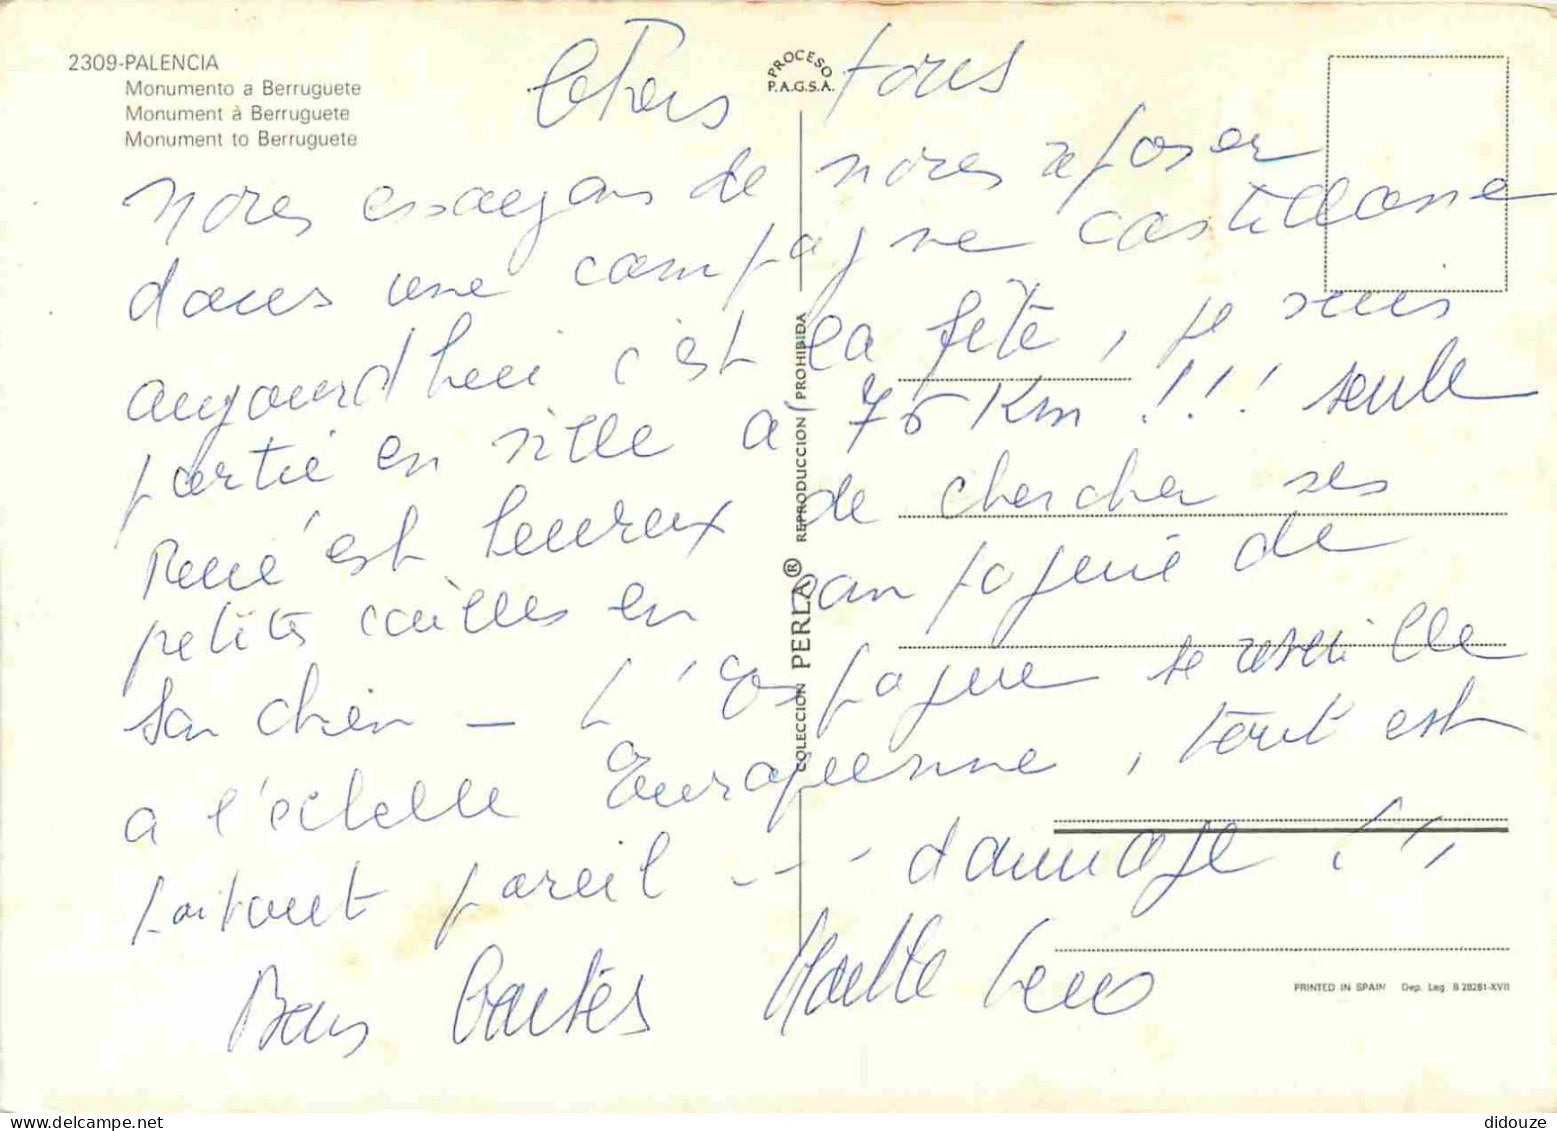 2309-PALENCIA
Monumento a Berruguete
Monument à Berruguete
Monument to Berruguete
PROCESO
P.A.G.S.A.
Chers tous
nous essayons de nous reposer
dans une campagne castillane
aujourd'hui c'est la fête, je suis
partie en ville à 75 Km !!! seule
René est heureux de chercher ses
petites cailles en compagnie de
son chien — L'Espagne se réveille
a l'échelle Européenne, tout est
partout pareil --- dommage !!!
Bons
COLECCION PERLA® REPRODUCCION PROHIBIDA
PRINTED IN SPAIN Dep. Leg. B 28281-XVII
didouze